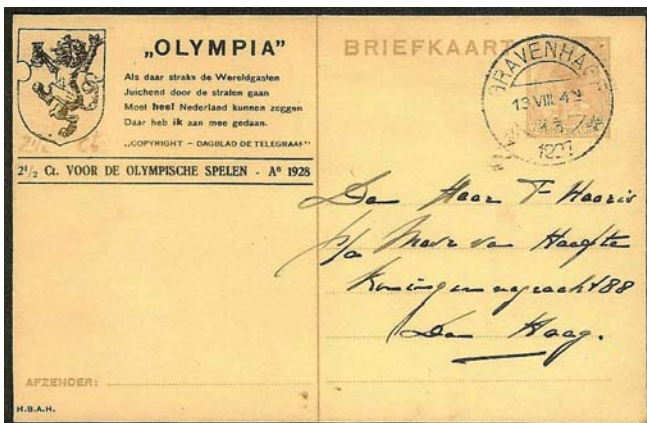 „OLYMPIA”
Als daar straks de Wereldgasten
Juichend door de straten gaan
Moet heel Nederland kunnen zeggen
Daar heb ik aan mee gedaan.
„COPYRIGHT - DAGBLAD DE TELEGRAAF”
2½ Ct. VOOR DE OLYMPISCHE SPELEN - Aº 1928
BRIEFKAART
GRAVENHAGE
13 VIII 4-N
1927
Den Heer F
p/a van Haaften
88
Den Haag.
AFZENDER:
H.B.A.H.